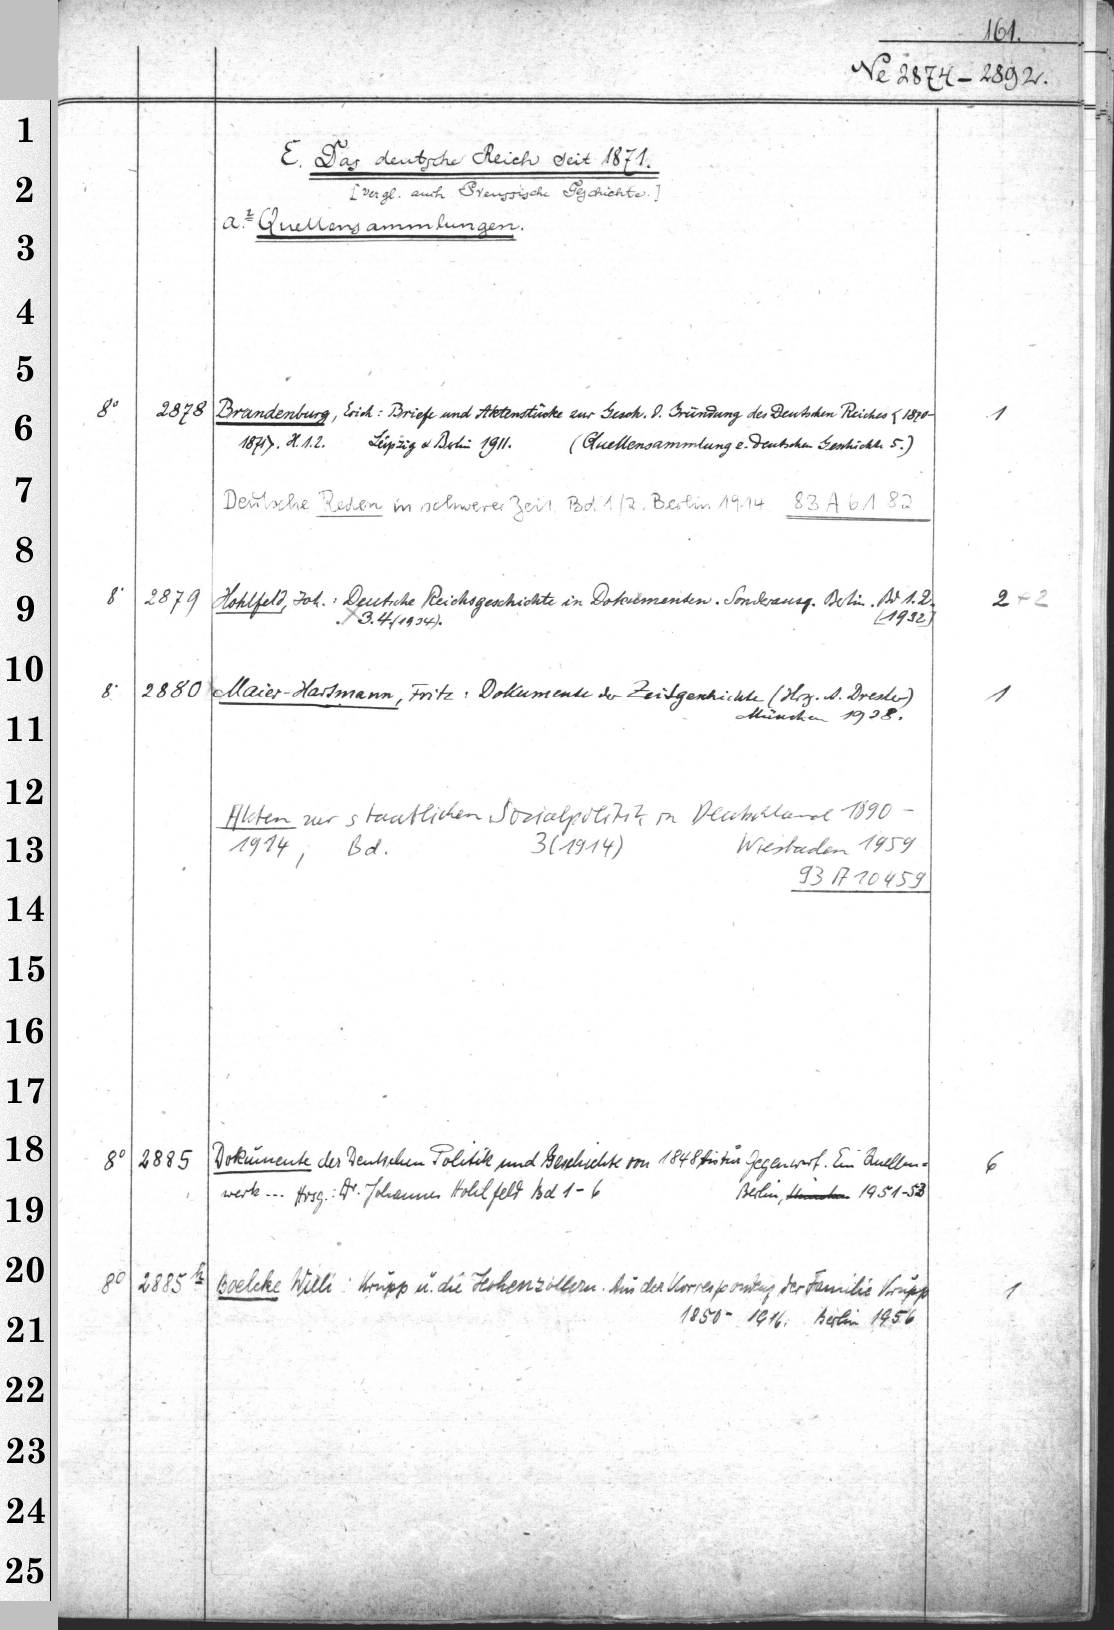 161.
Ne 2874 – 2892.
1
E. Das deutsche Reich seit 1871.
2
[Vergl. auch Preussische Geschichte.]
a. Quellensammlungen.
3
4
5
8° 2878 Brandenburg, Erich: Briefe und Aktenstücke zur Gesch. d. Gründung des Deutschen Reiches <1870- 1
6
1871>. H. 1.2. Leipzig & Berlin 1911. (Quellensammlung z. deutschen Geschichte 5.)
7
Deutsche Reden in schwerer Zeit. Bd 1/2. Berlin 1914 83 A 6182
8
8° 2879 Hohlfeld, Joh.: Deutsche Reichsgeschichte in Dokumenten. Sonderausg. Berlin. Bd 1.2. 2 + 2
9
3.4 (1934). [1932]
10
8° 2880 Maier-Hartmann, Fritz: Dokumente der Zeitgeschichte (Hrg. A. Dresler) 1
11
München 1938.
12
Akten zur staatlichen Sozialpolitik in Deutschland 1890 –
13
1914, Bd. 3(1914) Wiesbaden 1959
93 A 10459
14
15
16
17
18
8° 2885 Dokumente der Deutschen Politik und Geschichte von 1848 bis zur Gegenwart. Ein Quellen- 6
19
werk... Hrsg.: Dr. Johannes Hohlfeld Bd 1-6 Berlin, München 1951-53
20
8° 2885 Boelcke Willi: Krupp u. die Hohenzollern. Aus der Korrespondenz der Familie Krupp 1
21
1850- 1916. Berlin 1956
22
23
24
25